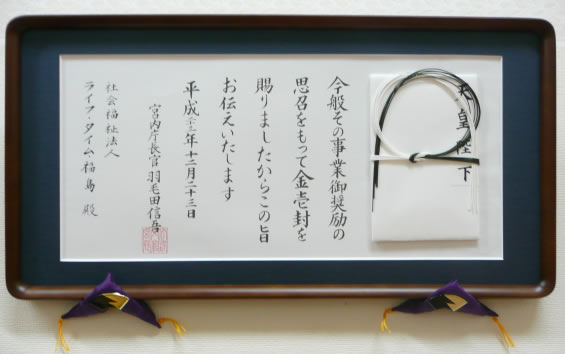 天皇陛下
今般その事業御奨励の
思召をもって金壱封を
賜りましたからこの旨
お伝えいたします
平成二十三年十二月二十三日
宮内庁長官 羽毛田信吾
社会福祉法人
ライフ・タイム・福島 殿